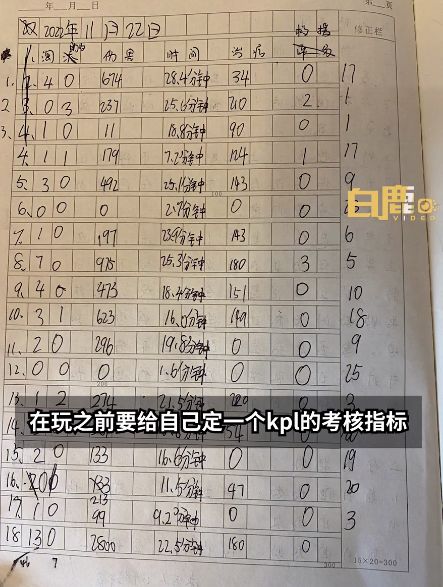 年 月 日 第 页
双 2022年11月22日 修正栏
伤害 时间 治疗
1. 2 4 0 674 28.4分钟 34 0 17
2. 3 0 3 237 25.6分钟 210 2 1
3. 4 1 0 11 18.8分钟 90 0 1
4. 1 1 179 7.2分钟 124 1 17
5. 3 0 492 25.1分钟 143 0 9
白鹿
VIDEO
6. 0 0 0 2.7分钟 0 0
7. 1 0 197 23.9分钟 143 0 6
8. 7 0 975 25.3分钟 180 3 5
9. 4 0 473 18.4分钟 151 0 10
10. 3 1 623 16.0分钟 149 0 18
11. 2 0 296 19.8分钟 0 0 9
12. 0 0 0 1.6分钟 0 0 25
13. 1 2 274 21.5分钟 3
在玩之前要给自己定一个kpl的考核指标
15. 2 0 133 16.6分钟 0 0 19
16. 11.5分钟 47 0 20
213
17. 1 0 99 9.2分钟 0 0 3
18 13 0 2800 22.5分钟 180
15×20=300